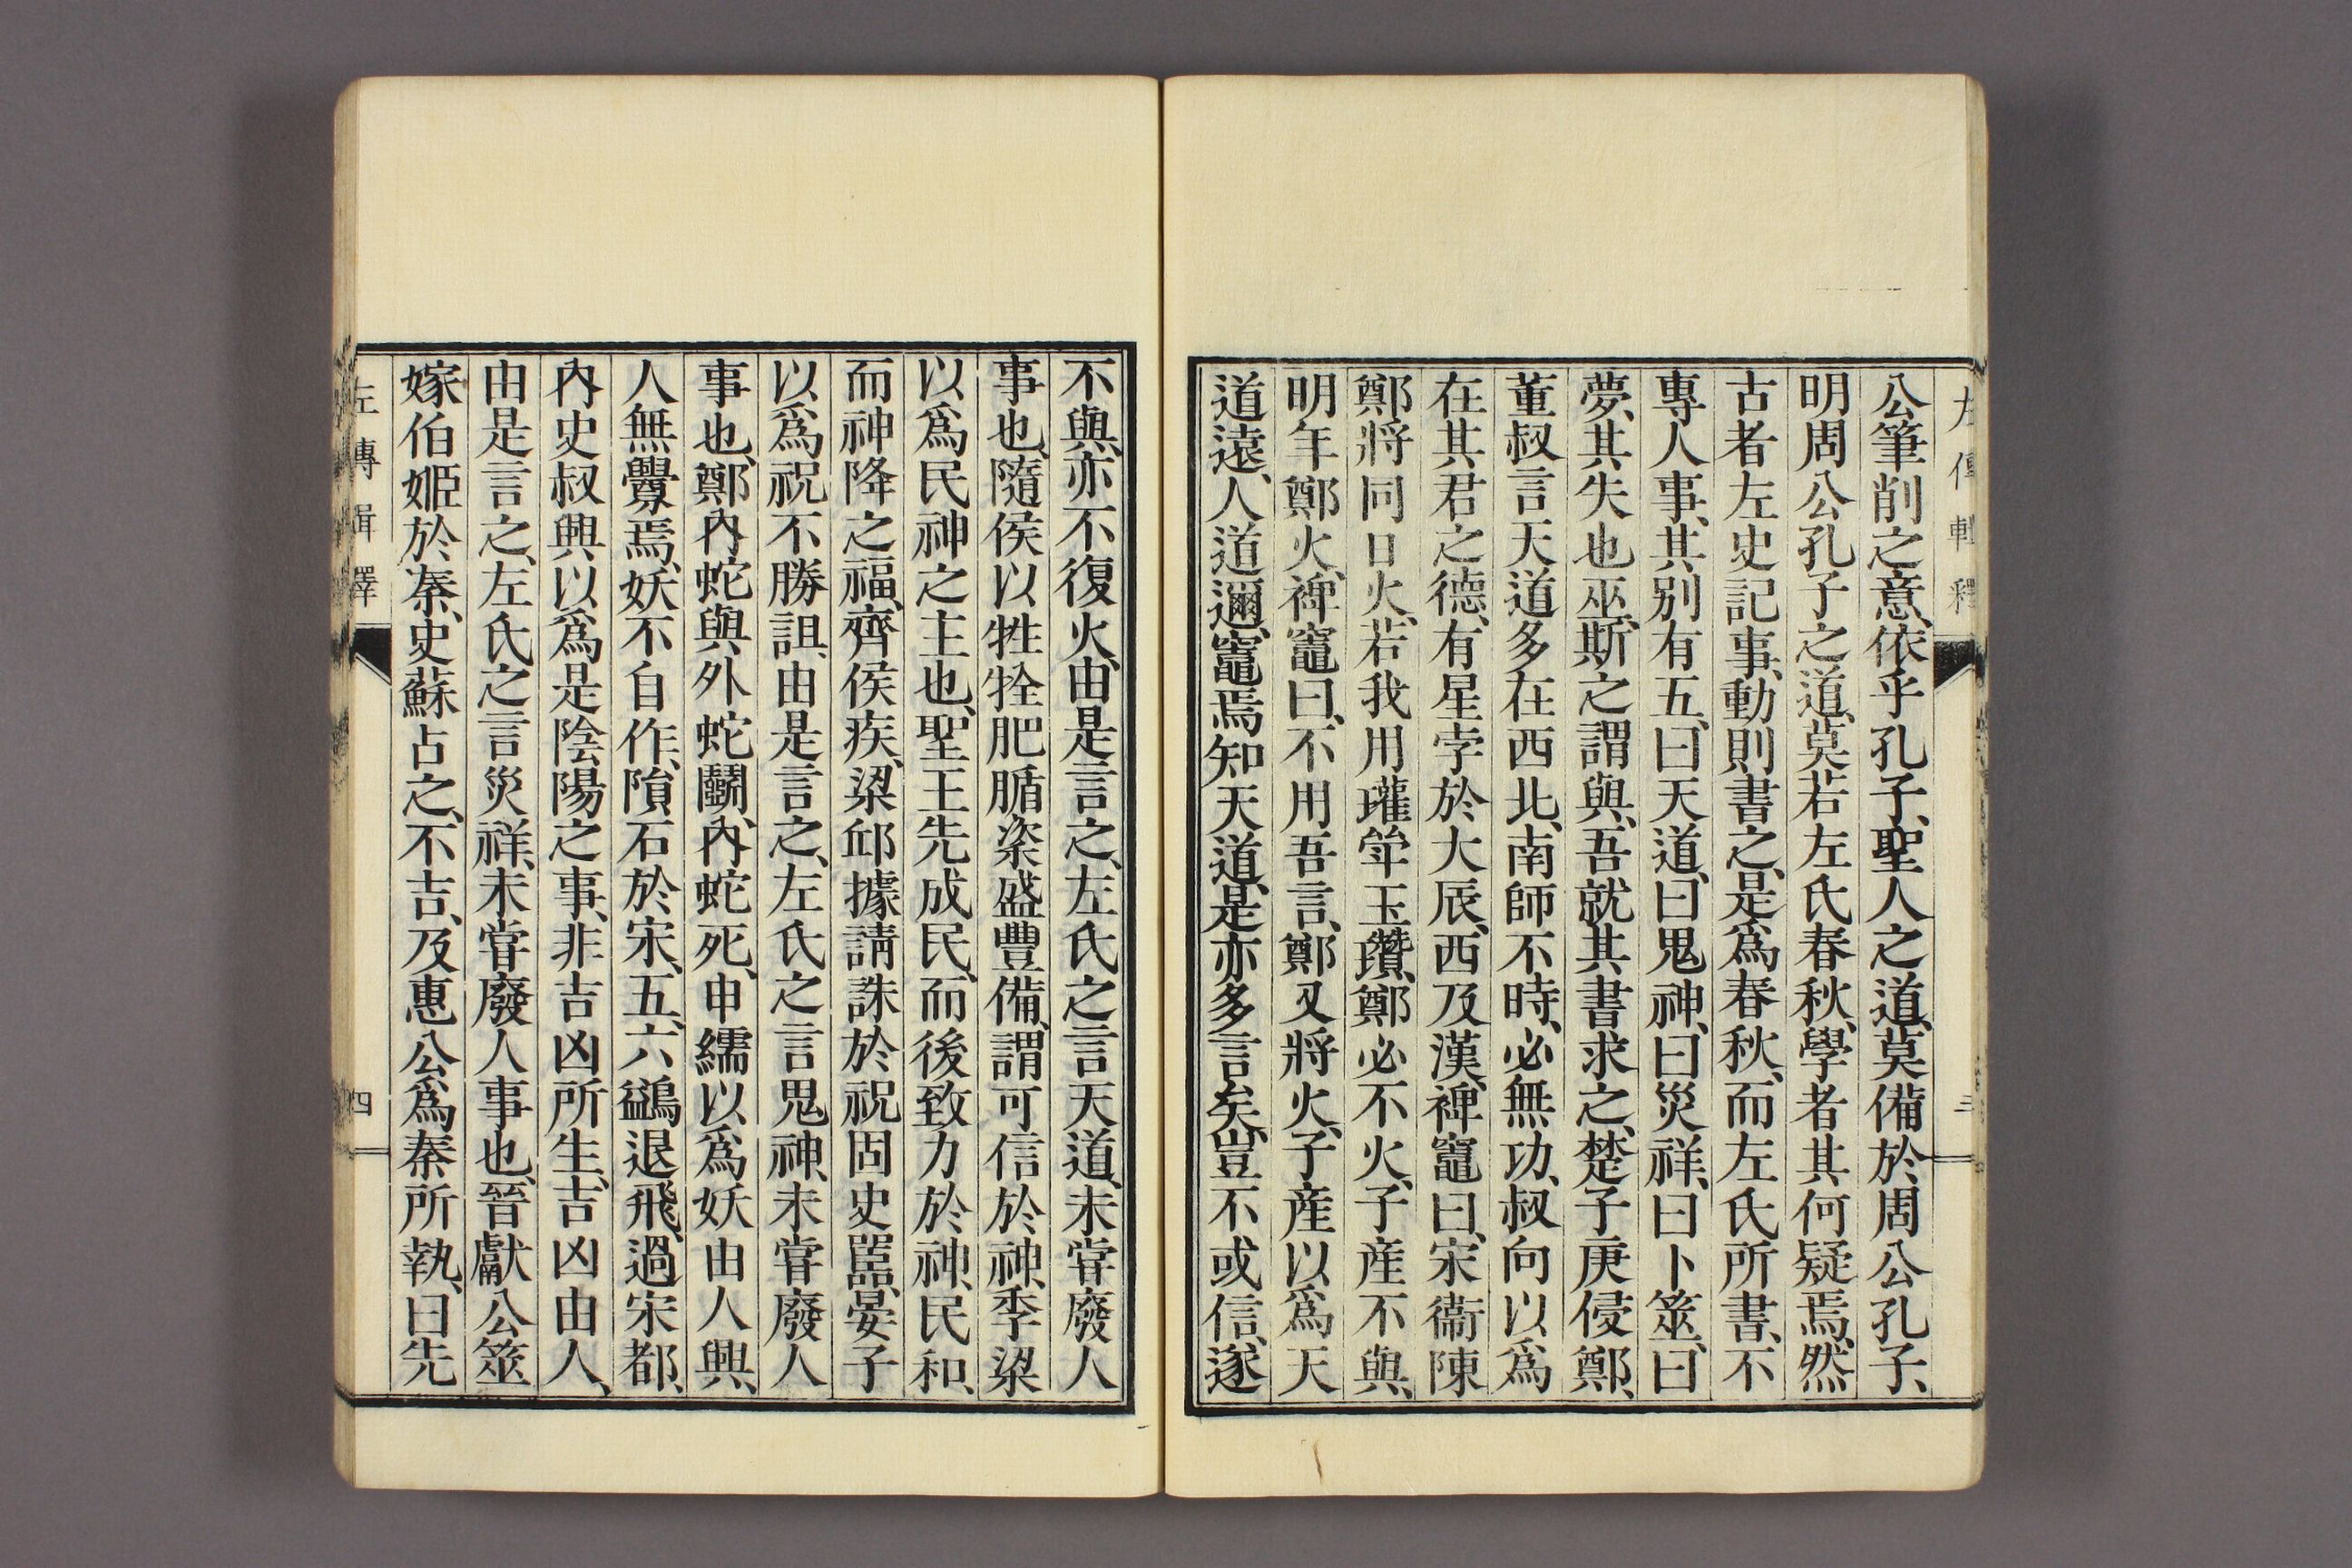 公筆削之意、依乎孔子、聖人之道、莫備於周公孔子、
明周公孔子之道、莫若左氏春秋、學者其何疑焉、然
古者左史記事、動則書之、是爲春秋、而左氏所書、不
專人事、其別有五、曰天道、曰鬼神、曰災祥、曰卜筮、曰
夢、其失也巫、斯之謂與、吾就其書求之、楚子庚侵鄭、
董叔言天道多在西北、南師不時、必無功、叔向以爲
在其君之德、有星孛於大辰、西及漢、裨竈曰、宋衞陳
鄭將同日火、若我用瓘斝玉瓚、鄭必不火、子産不與、
明年鄭火、裨竈曰、不用吾言、鄭又將火、子産以爲天
道遠、人道邇、竈焉知天道、是亦多言矣、豈不或信、遂
左傳輯釋
三
不與、亦不復火、由是言之、左氏之言天道、未甞廢人
事也、隨侯以牲牷肥腯粢盛豐備、謂可信於神、季梁
以爲民神之主也、聖王先成民、而後致力於神、民和、
而神降之福、齊侯疾、梁邱據請誅於祝固史嚚、晏子
以爲祝不勝詛、由是言之、左氏之言鬼神、未甞廢人
事也、鄭內蛇與外蛇鬭、內蛇死、申繻以爲妖由人興、
人無釁焉、妖不自作、隕石於宋、五、六鷁退飛、過宋都、
內史叔興以爲是陰陽之事、非吉凶所生、吉凶由人、
由是言之、左氏之言災祥、未甞廢人事也、晉獻公筮
嫁伯姬於秦、史蘇占之、不吉、及惠公爲秦所執、曰先
左傳輯釋
四